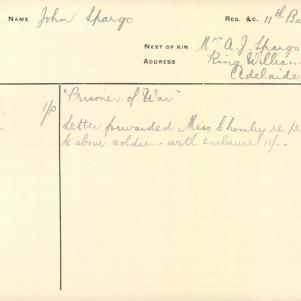 NAME John Spargo REG. &C. 11th Ba
NEXT OF KIN Mrs A. J. Spargo
ADDRESS King William
Adelaide
1/P "Prisoner of War"
Letter forwarded Miss Chomley re
to above soldier - with enclosure 15/-